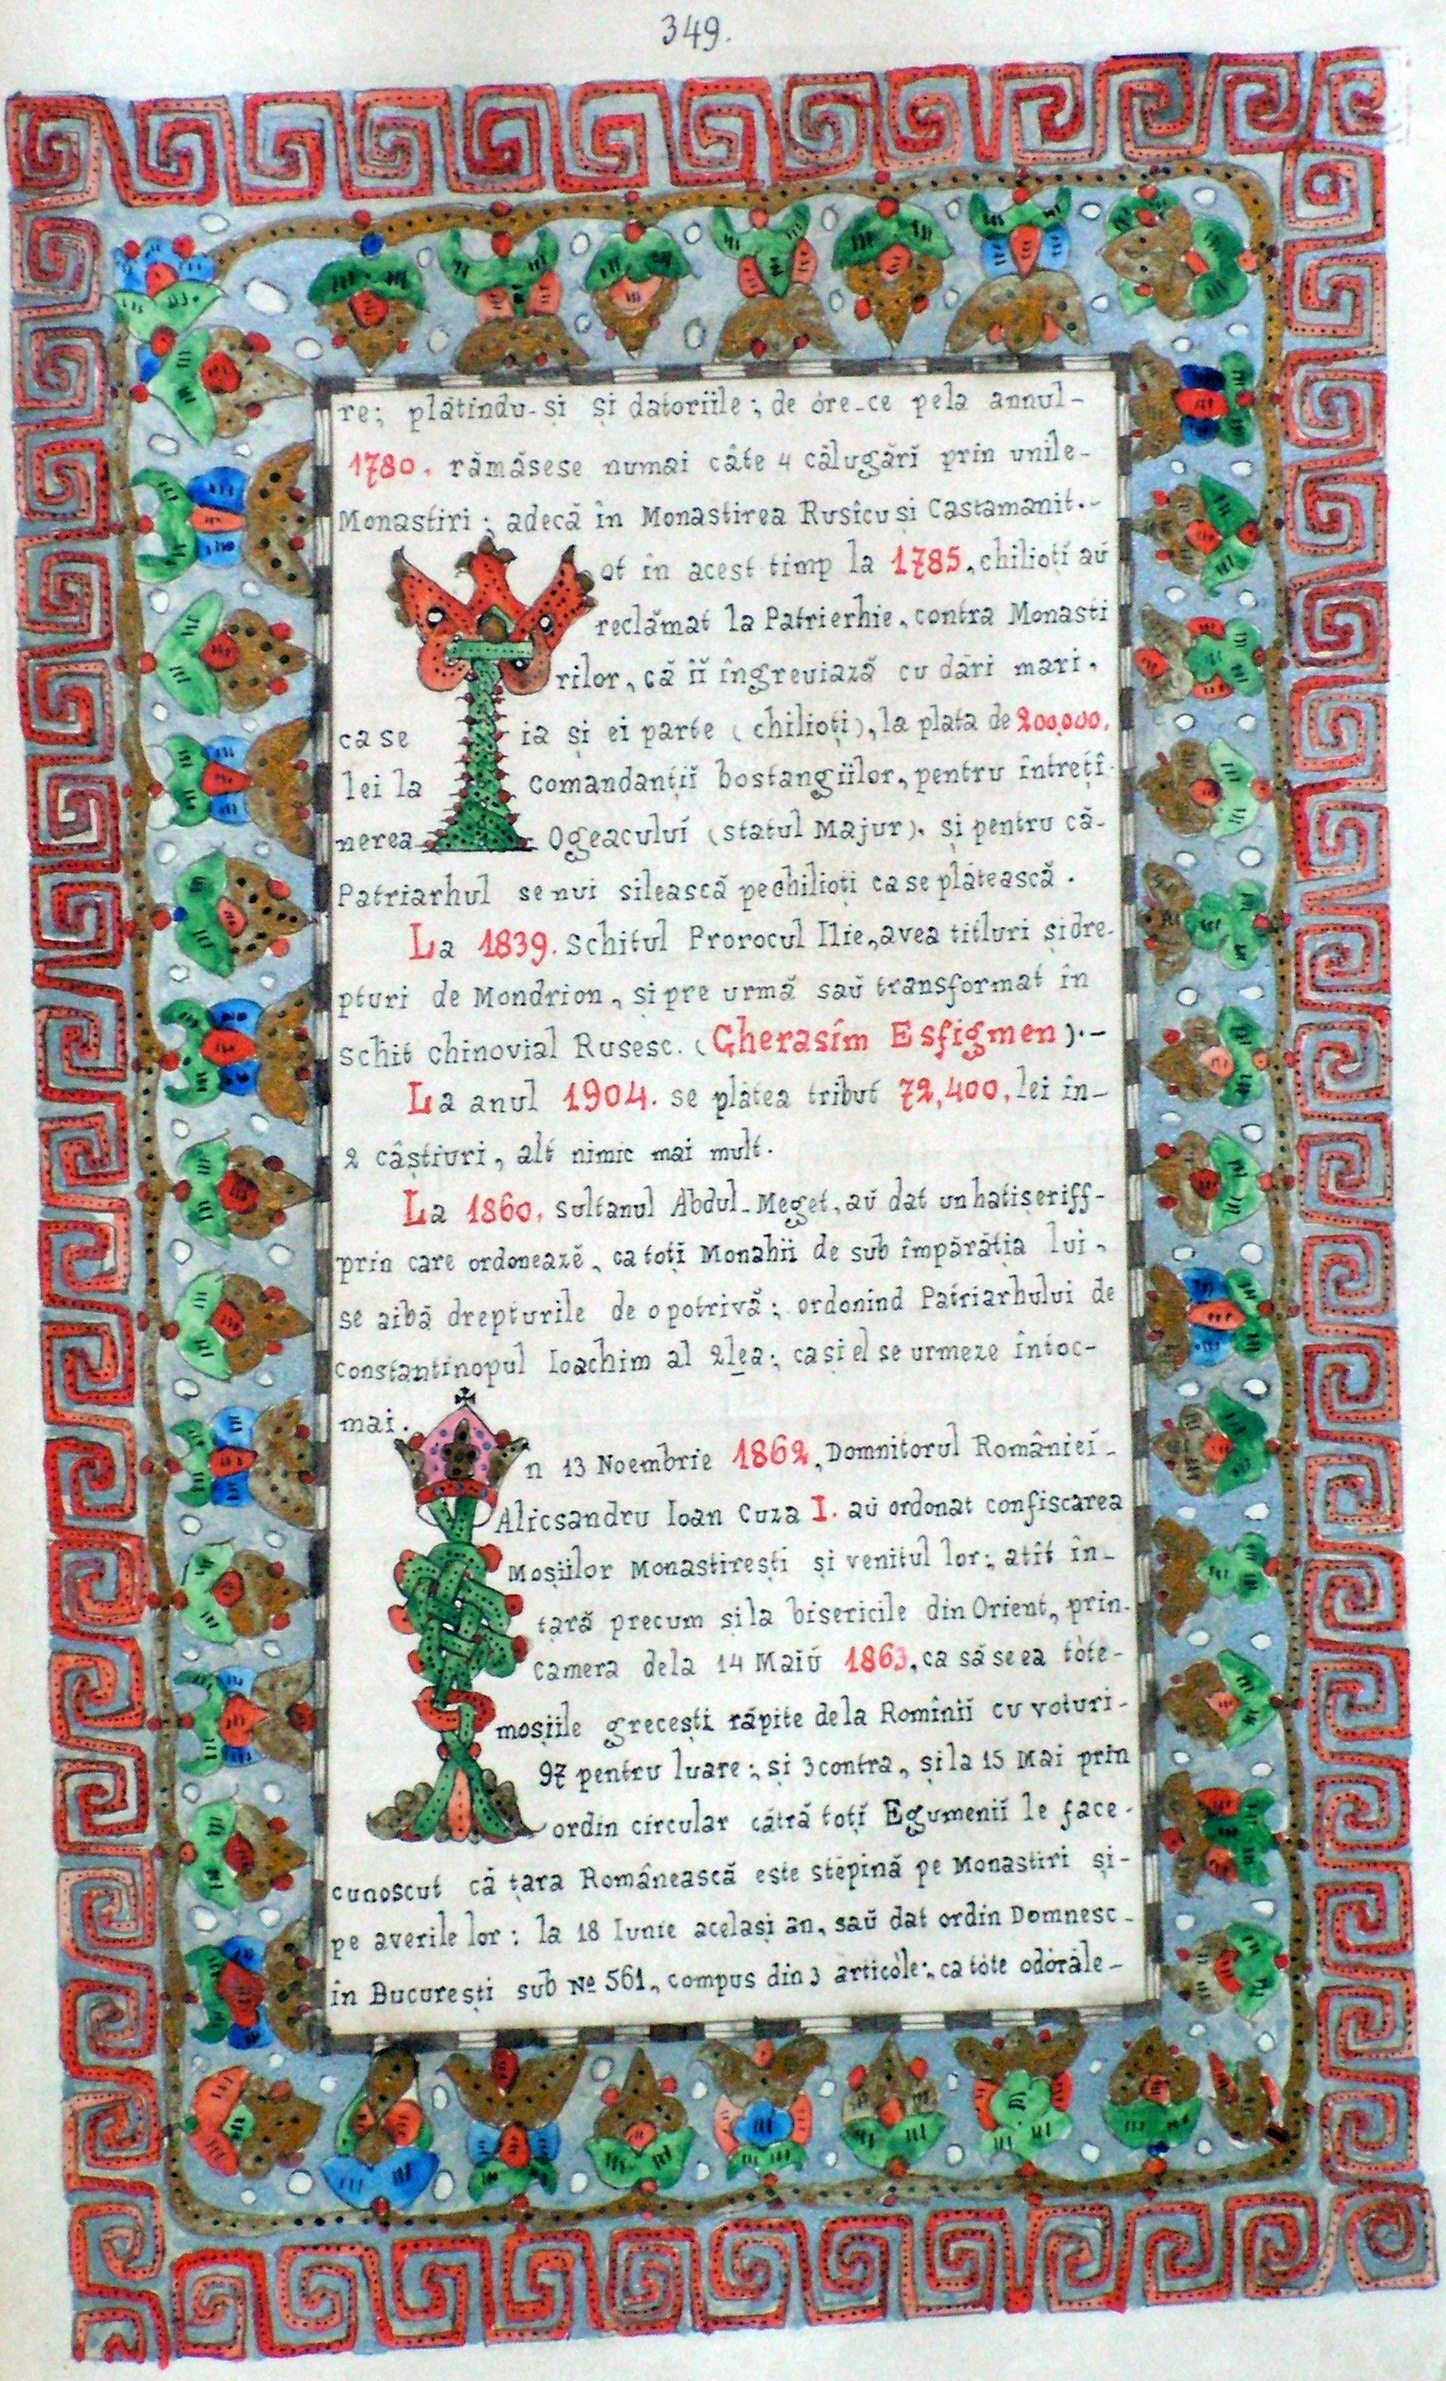 349.
re; plătindu-și și datoriile; de óre-ce pela annul-
1780. rămăsese numai câte 4 călugări prin unile-
Monastiri; adecă în Monastirea Rusicu și Castamanit.-
Tot în acest timp la 1785, chilioți aŭ
reclămat la Patrierhie, contra Monasti
rilor, că iĭ îngreuiază cu dări mari,
ca se ia și ei parte (chilioți), la plata de 200,000,
lei la Comandanțiĭ bostangiilor, pentru întreți-
nerea Ogeaculuĭ (statul Majur). și pentru că-
Patriarhul se nui silească pe chilioți ca se plătească.
La 1839. Schitul Prorocul Ilie, avea titluri și dre-
pturi de Mondrion, și pre urmă saŭ transformat în
schit chinovial Rusesc. (Gherasîm Esfigmen).-
La anul 1904. se plătea tribut 72,400, lei în-
2 câștiuri, alt nimic mai mult.
La 1860, sultanul Abdul-Meget, aŭ dat un hatișeriff-
prin care ordonează, ca toți Monahii de sub împărăția lui,
se aibă drepturile de o potrivă; ordonind Patriarhului de
constantinopul Ioachim al 2lea; ca și el se urmeze întoc-
mai.
În 13 Noembrie 1862, Domnitorul Românieĭ-
Alicsandru Ioan Cuza I. aŭ ordonat confiscarea
Moșiilor Monastirești și venitul lor; atît în-
țară precum și la bisericile din Orient, prin-
Camera dela 14 Maiŭ 1863, ca să se ea tòte-
moșiile grecești răpite dela Romîniĭ cu voturi-
97 pentru luare; și 3 contra, și la 15 Mai prin
ordin circular cătră toțĭ Egumeniĭ le face-
cunoscut că țara Românească este stepină pe Monastiri și-
pe averile lor; la 18 Iunie același an, saŭ dat ordin Domnesc-
în București sub No 561, compus din 3 articòle; ca tòte odòrăle-